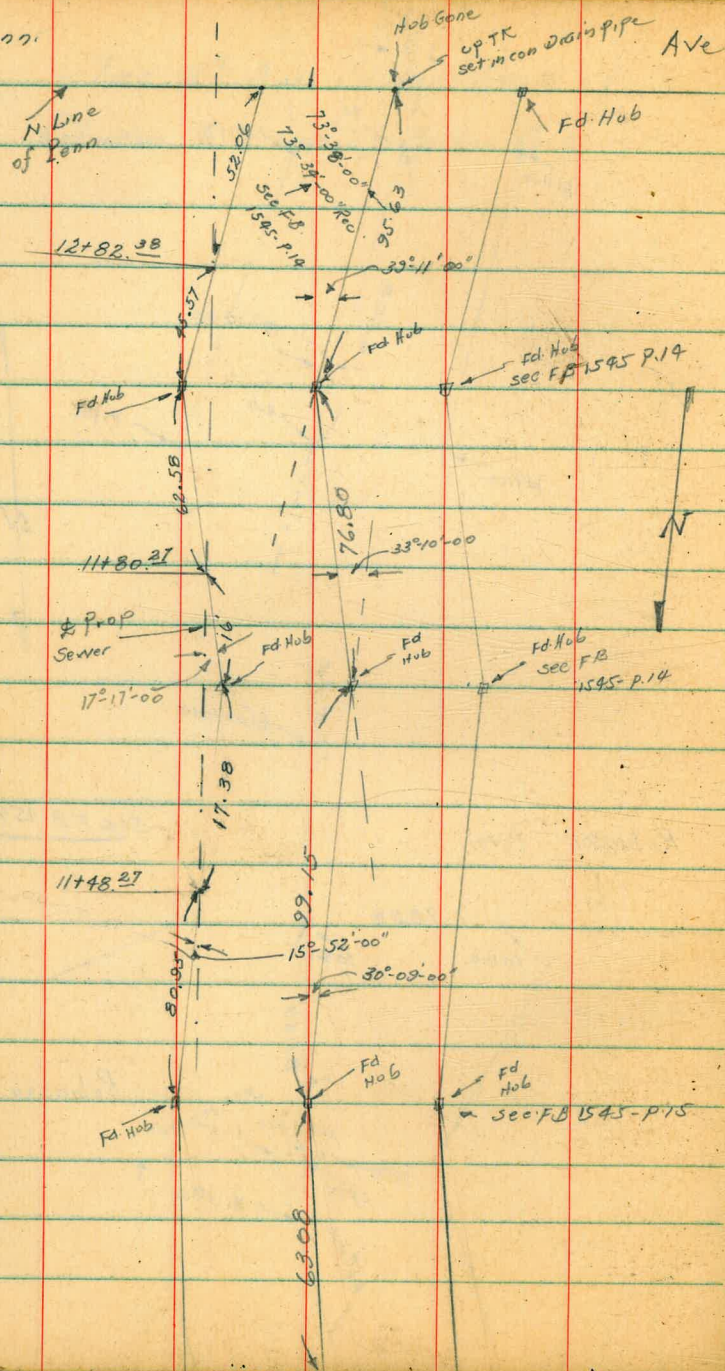 Hub Gone
up TK
set in con Drain pipe
Ave
N. Line
of Penn
Fd. Hub
52.06
73°-38'-00"
73°-39'-00" Rec
see F.B.
1545-P.14
95.63
12+82.38
39°-11'-00"
45.57
Fd. Hub
Fd. Hub
Fd. Hub
see F.B 1545 P.14
62.58
76.80
33°-10'-00
11+80.27
N
₵ Prop
Sewer
16'
Fd. Hub
Fd
Hub
Fd. Hub
see F.B
1545-P.14
17°-17'-00
17.38
11+48.27
99.15
15°-52'-00"
80.95
30°-09'-00"
Fd. Hub
Fd
Hub
Fd
Hub
see F.B 1545-P.15
63.08